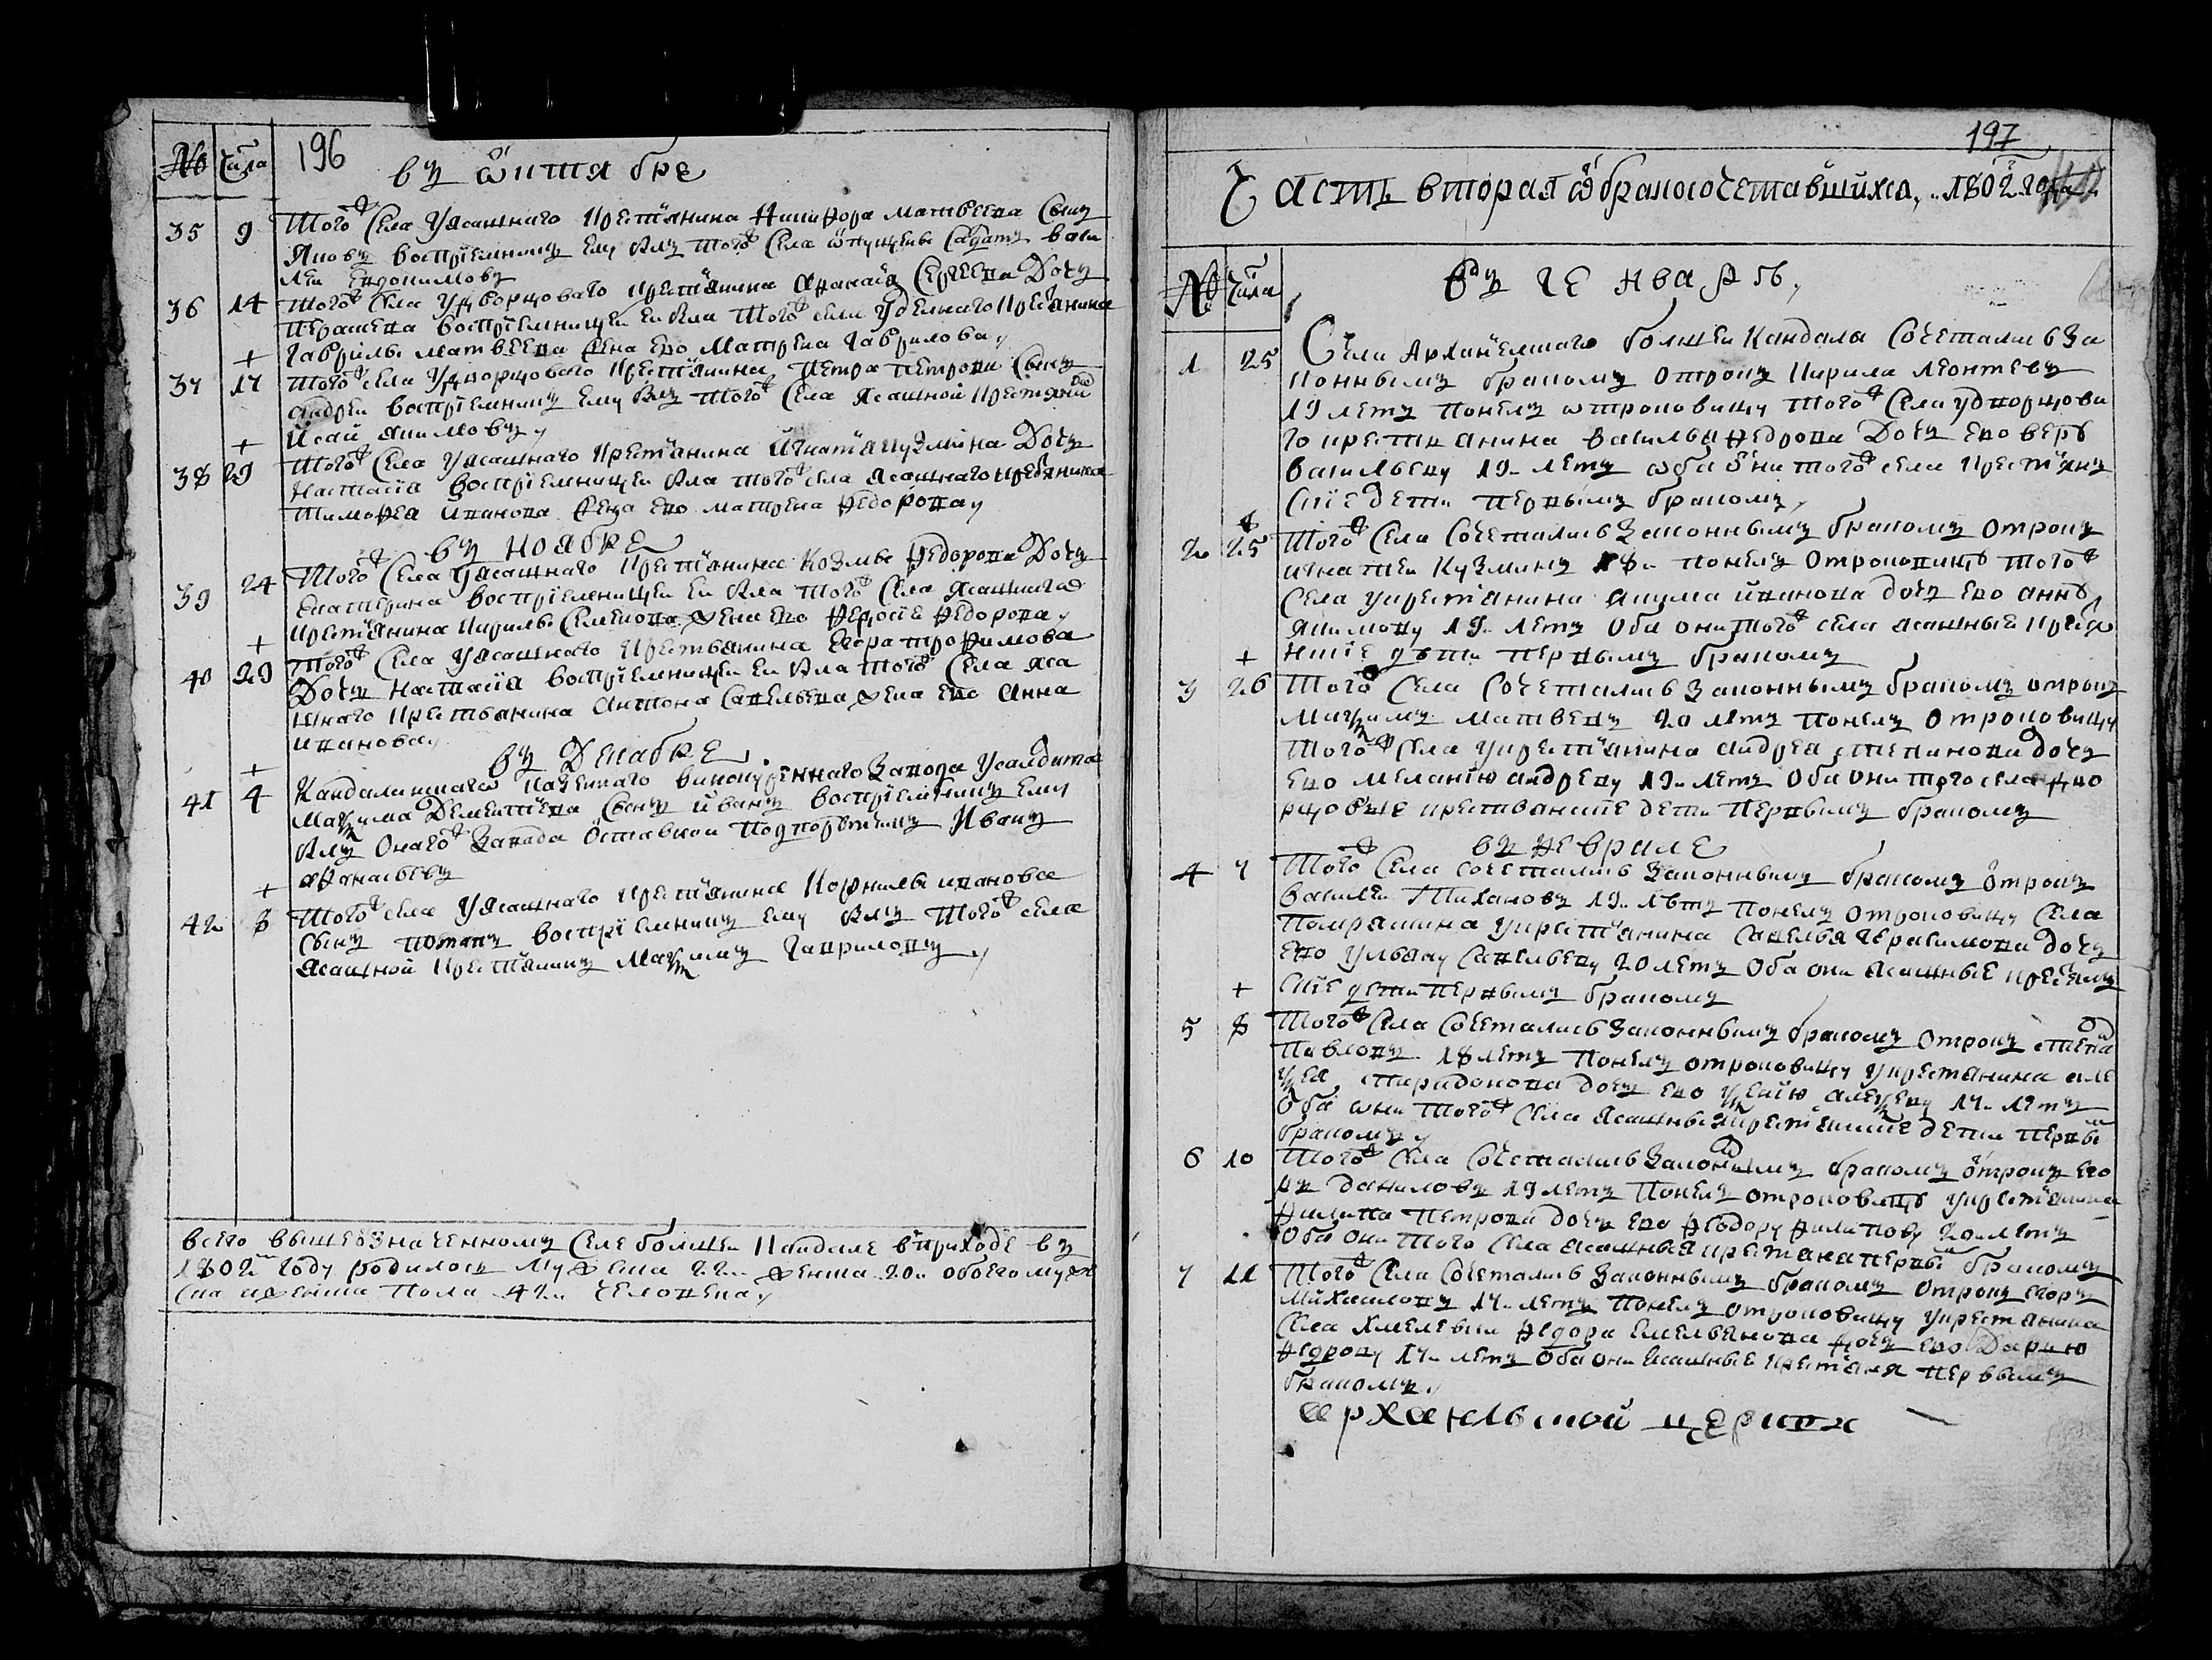 № Числа 196 въ октябре
35 9 Того села у ясашнаго крестьянина Никифора Матвеева сынъ
Яковъ восприемникъ ему былъ того села отпущены салдатъ Васи
лей Евдокимовъ
36 14 Того села у дворцоваго крестьянина Афанасия Сергеева дочь
Перасева восприемницеи еи была того села удельнаго крестьянина
+ Гаврилы Матвеева жена ево Матрена Гаврилова
37 17 Того села у дворцоваго крестьянина Петра Петрова сынъ
Андреи восприемникъ ему былъ того села ясашной крестьянин
+ Исай Якимовъ
38 29 Того села у ясашнаго крестьянина Игнатия Кузмина дочь
Настасия восприемницеи была того села ясашнаго крестьянина
Тимофея Иванова жена ево Матрена Федорова
въ ноябре
39 24 Того села у ясашнаго крестьянина Козмы Федорова дочь
Екатерина восприемницеи еи была того села ясашнаго
крестьянина Кирилы Семенова жена ево Федосия Федорова
+
40 29 Того села у ясашнаго крестьянина Егора Трофимова
дочь Настасия восприемницеи еи была того села яса
шнаго крестьянина Антона Савельева жена ево Анна
Иванова
въ декабре
+
41 4 Кандалинскаго казеннаго винокуреннаго завода у салдата
Максима Дементиева сынъ Иванъ восприемникъ ему
былъ онаго завода отставнои подпорутчикъ Иванъ
Афанасьевъ
+
42 8 Того села у ясашнаго крестьянина Корнилы Иванова
сынъ Потапъ восприемникъ ему былъ того села
ясашной крестьянинъ Максимъ Гавриловъ
всего вышеозначенному селе болшеи Кандале в приходе въ
1802м году родилось мужеска 22. женска 20. обоего муже
ска и женска пола 42. человека
197
Часть вторая о бракосочетавшихся, 1802 года
№ Числа въ генваре
1 25 Села Архангелскаго болшеи Кандалы сочетались за
коннымъ бракомъ отрокъ Кирила Леонтевъ
19 летъ понелъ отроковицу того села у дворцова
го крестьянина Василья Федрова дочь ево Веру
Васильеву 19. летъ оба они того села крестьян
ские дети первымъ бракомъ
2 25 Того села сочетались законнымъ бракомъ отрокъ
Игнатеи Кузминъ 18. понелъ отроковицу того
села у крестьянина Якима Иванова дочь ево Анну
Якимову 19. летъ оба они того села ясашные крестья
+ нские дети первымъ бракомъ
3 26 Того села сочетались законнымъ бракомъ отрокъ
Максимъ Матвеевъ 20 летъ понелъ отроковицу
того села у крестьянина Андрея Степанова дочь
ево Меланию Андрееву 19. летъ оба они того села дво
рцовые крестьянские дети первымъ бракомъ
въ феврале
4 7 Того села сочетались законнымъ бракомъ отрокъ
Василеи Тихановъ 19. летъ понелъ отроковицу села
Помряскина у крестьянина Савелья Герасимова дочь
ево Ульяну Савельеву 20 летъ оба они ясашные крестьян
+ ские дети первымъ бракомъ
5 8 Того села сочетались законнымъ бракомъ отрокъ Степан
Павловъ 18 летъ понелъ отроковицу у крестьянина Але
ксея Спиридонова дочь ево Ксению Алексееву 17. летъ
оба они того села ясашные крестьянские дети первым
бракомъ
6 10 Того села сочетались законнымъ бракомъ отрокъ Его
ръ Даниловъ 19 летъ понелъ отроковицу у крестьянина
Филипа Петрова дочь ево Федору Филипову 20. летъ
оба они того села ясашныя крестьяна первым бракомъ
7 11 Того села сочетались законнымъ бракомъ отрокъ Егоръ
Михаиловъ 17. летъ понелъ отроковицу у крестьянина
села Хмелевки Федора Емельянова дочь ево Дарью
Федрову 17. летъ оба они ясашные крестьяня первымъ
бракомъ
архангльской церкви